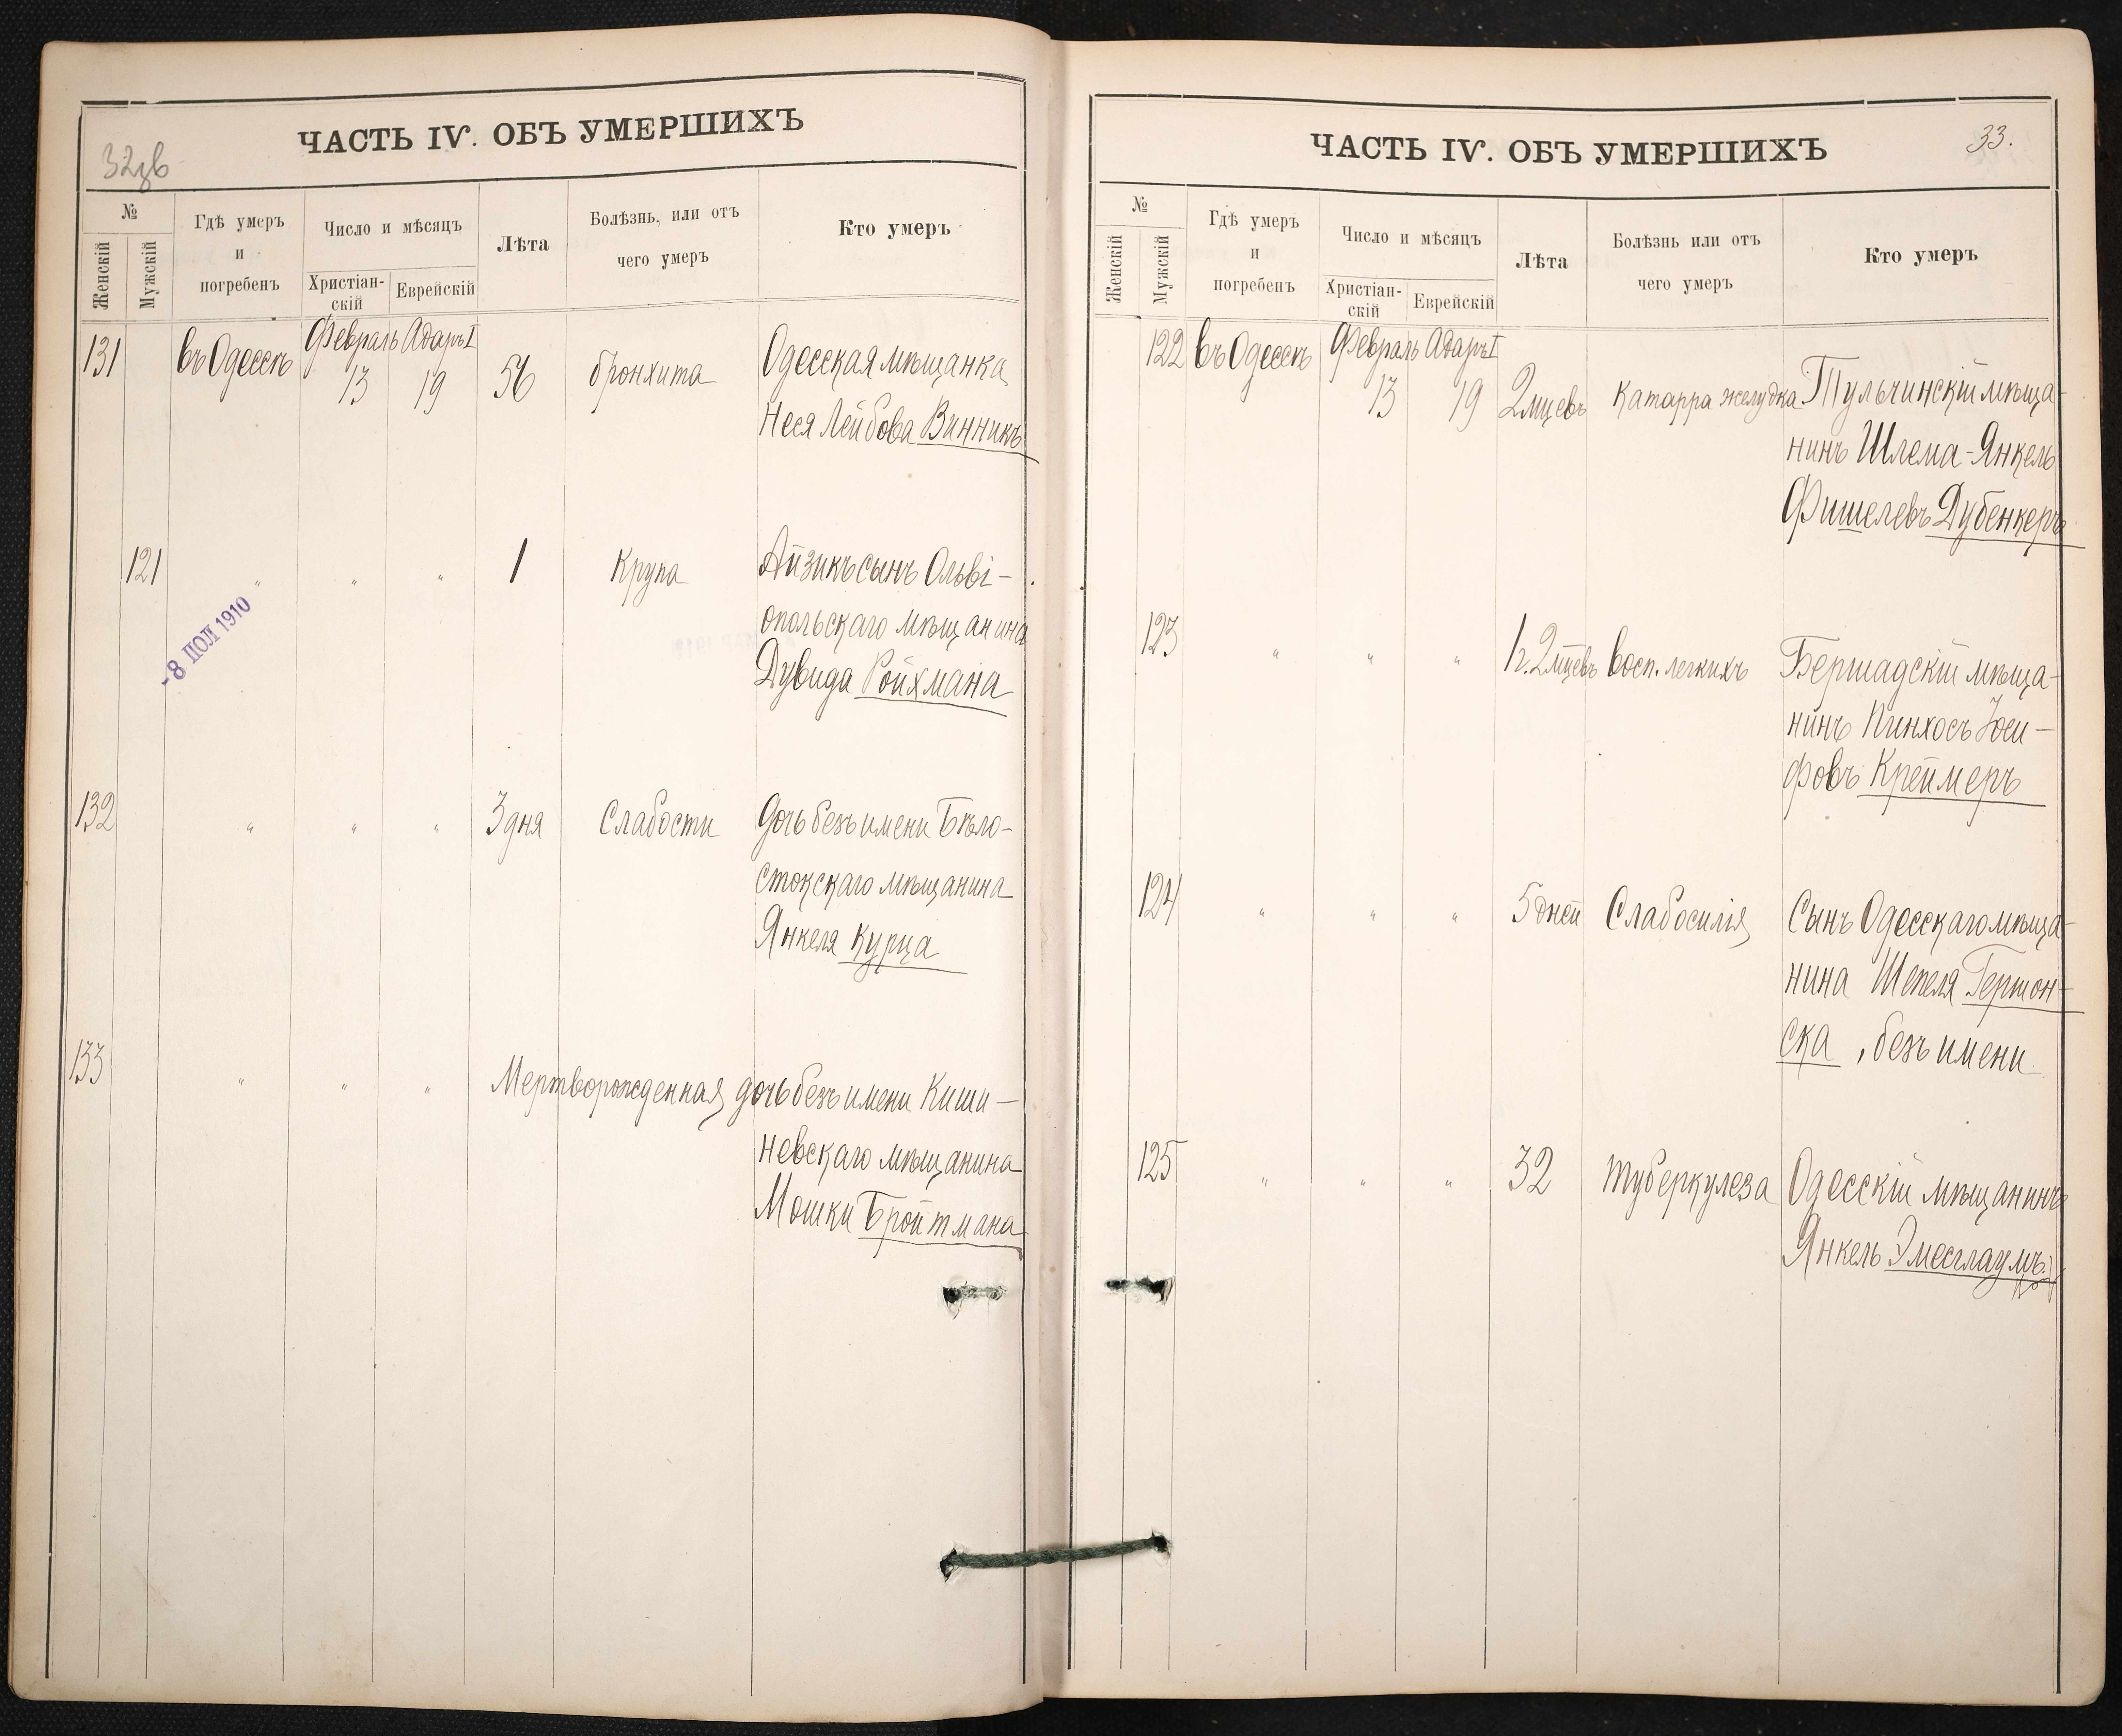 32зв
ЧАСТЬ IV. ОБЪ УМЕРШИХЪ
№
Женскій
Мужскій
Гдѣ умеръ
и
погребенъ
Число и мѣсяцъ
Христіан-
скій
Еврейскій
Лѣта
Болѣзнь, или отъ
чего умеръ
Кто умеръ
131 въ Одессѣ Февраль Адаръ I
13 19 56 бронхита Одесская мѣщанка
Неся Лейбова Винникъ
121 " " " 1 Крупа Айзикъ сынъ Ольві-
опольскаго мѣщанина
Дувида Ройхмана
-8 ІЮЛ 1910
132 " " " 3 дня Слабости Дочь безъ имени Бѣло-
стокскаго мѣщанина
Янкеля Курца
133 " " " Мертворожденная дочь безъ имени Киши-
невскаго мѣщанина
Мошки Бройтмана
33.
ЧАСТЬ IV. ОБЪ УМЕРШИХЪ
№
Женскій
Мужскій
Гдѣ умеръ
и
погребенъ
Число и мѣсяцъ
Христіан-
скій
Еврейскій
Лѣта
Болѣзнь или отъ
чего умеръ
Кто умеръ
122 въ Одессѣ Февраль Адаръ I
13 19 2 мцевъ Катарра желудка Тульчинскій мѣща-
нинъ Шлема-Янкель
Фишелевъ Дубенкеръ
123 " " " 1 г. 2 мцевъ Восп. легкихъ Бершадскій мѣща-
нинъ Пинхосъ Іоси-
фовъ Креймеръ
124 " " " 5 дней Слабосилія Сынъ Одесскаго мѣща-
нина Шепеля Гершон-
ска, безъ имени
125 " " " 32 Туберкулеза Одесскій мѣщанинъ
Янкель